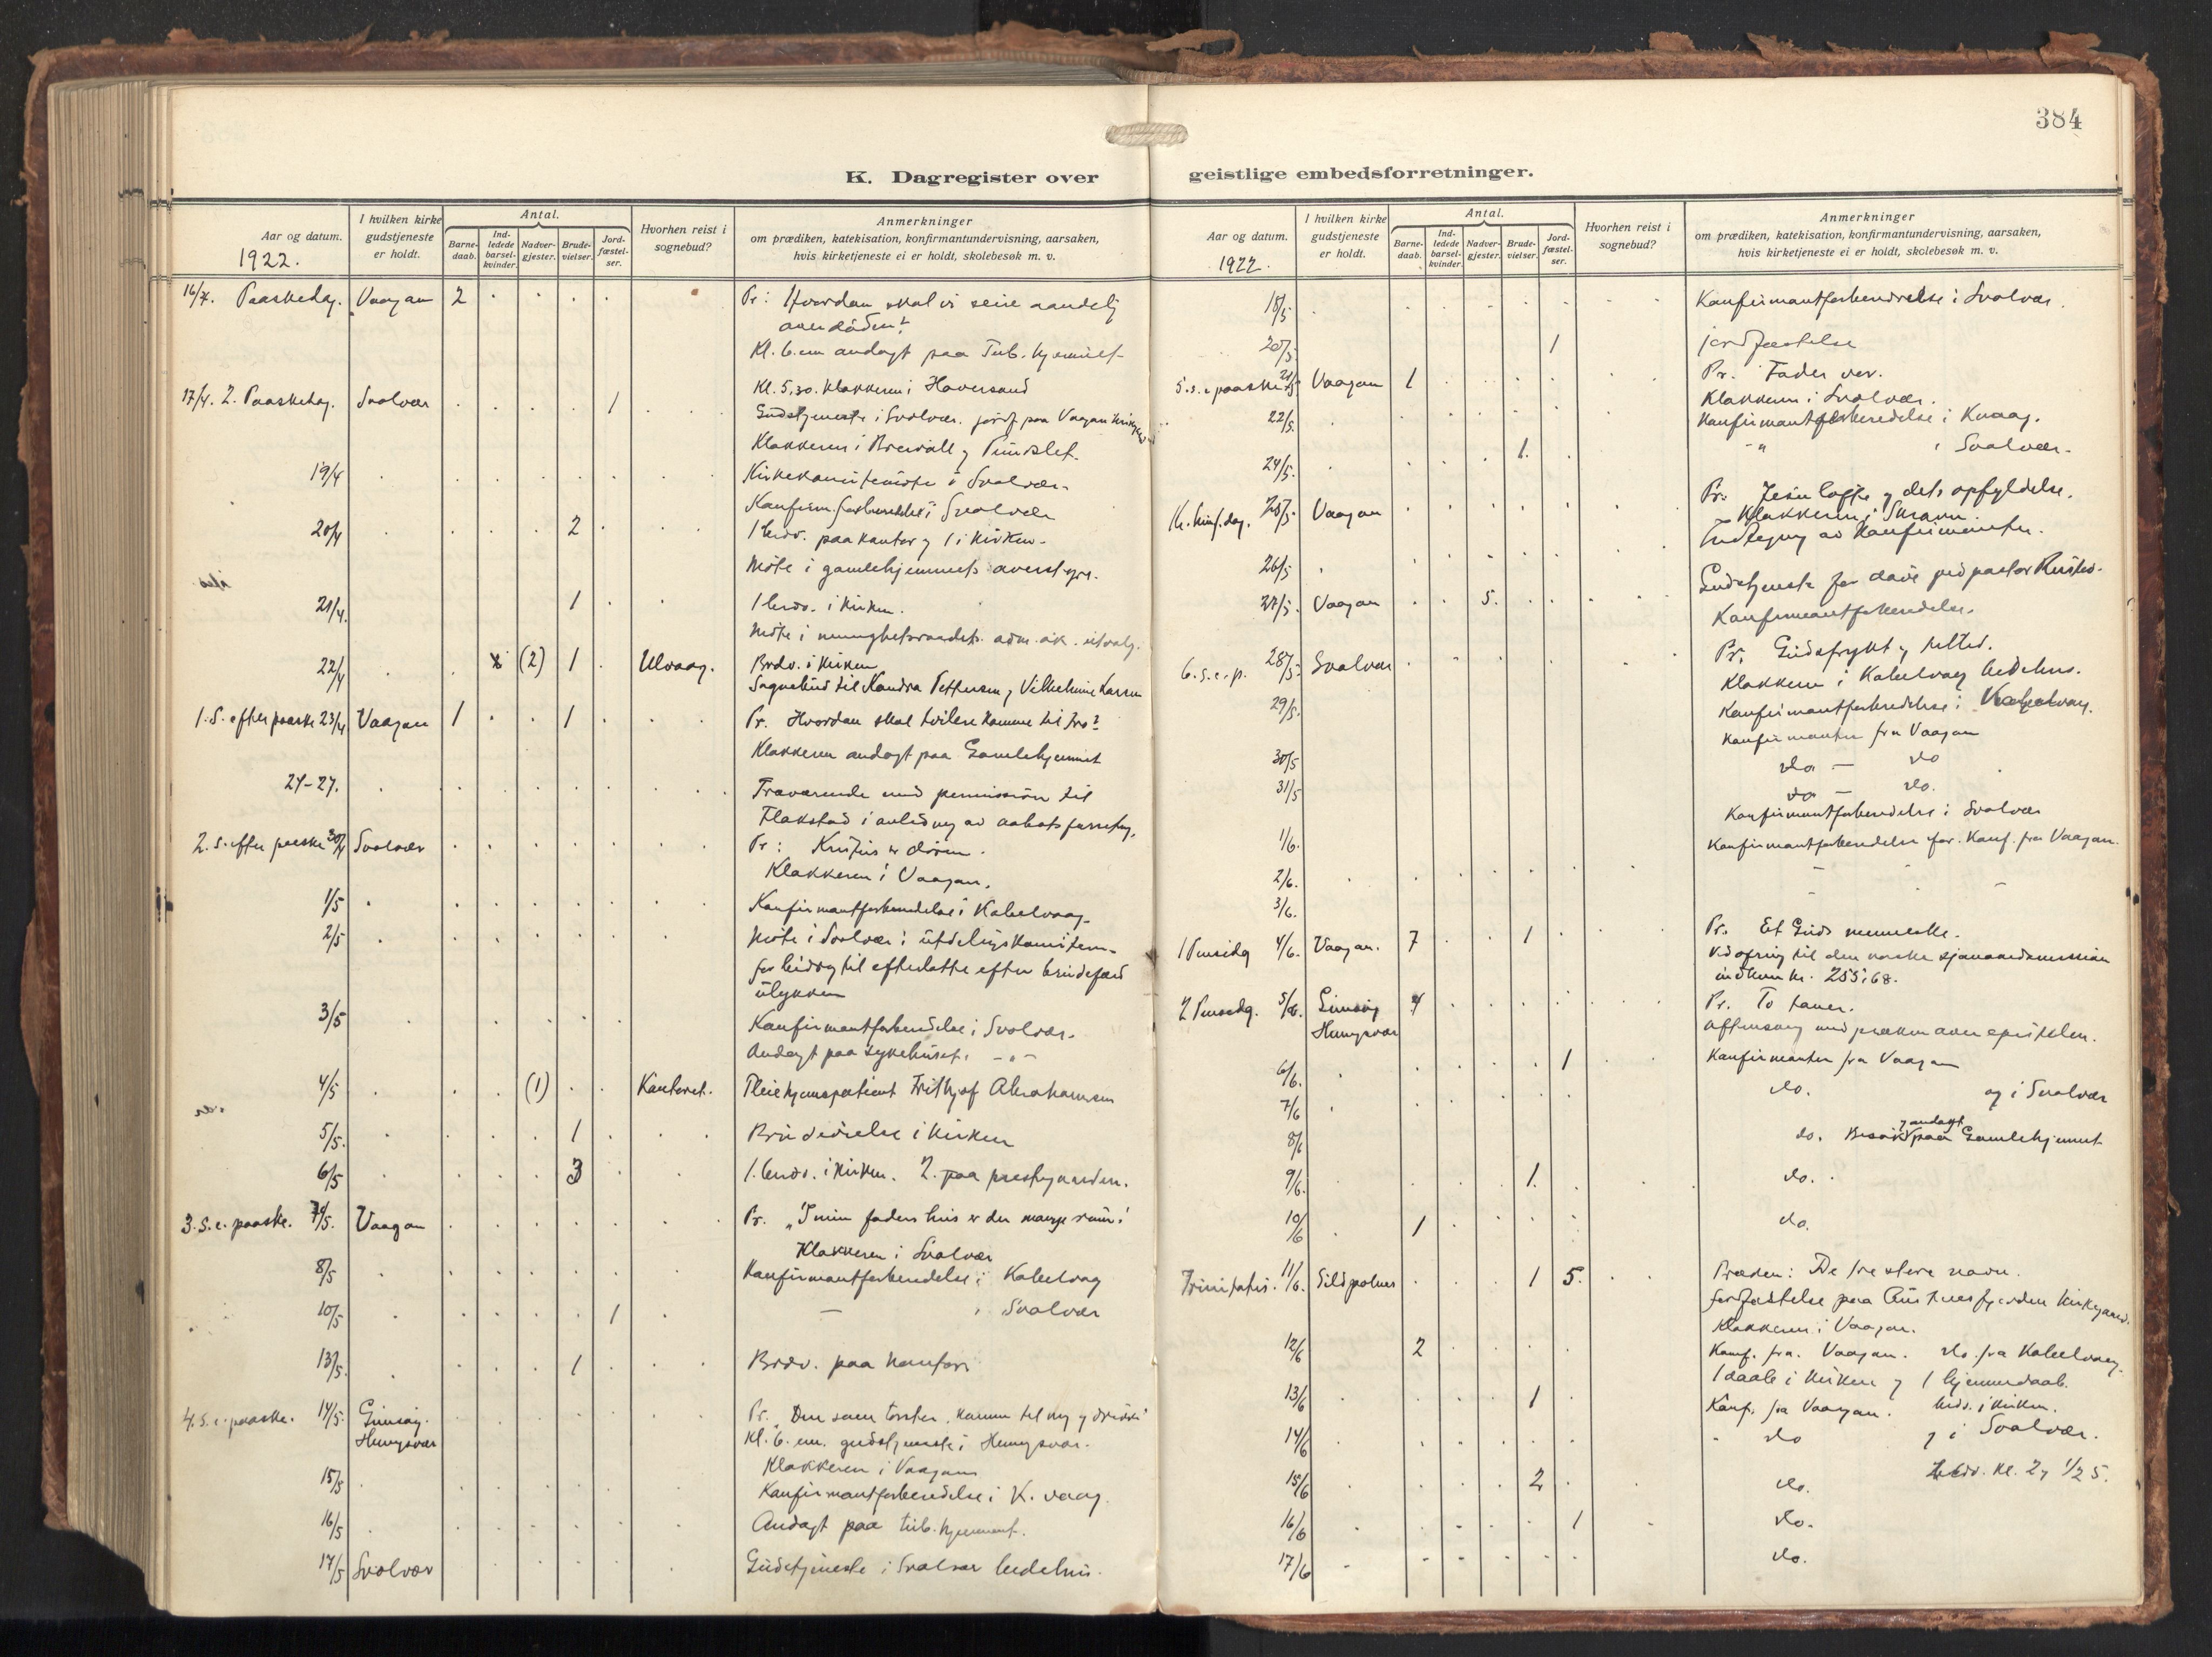 384
K. Dagregister over geistlige embedsforretninger.
Aar og datum.
1922.
I hvilken kirke gudstjeneste er holdt.
Antal.
Barne-daab.
Ind-ledede barsel-kvinder.
Nadver-gjester.
Brude-vielser.
Jord-fæstel-ser.
Hvorhen reist i sognebud?
Anmerkninger
om prædiken, katekisation, konfirmantundervisning, aarsaken,
hvis kirketjeneste ei er holdt, skolebesøk m. v.
16/4. Paaskedag. Vaagan 2 Pr: Hvordan skal vi seire aandelig
over døden?
Kl. 6. em andagt paa Tub. hjemmet
17/4. 2. Paaskedag. Svolvær 1 Kl. 5,30. Klokkeren i Haversand
Gudstjeneste i Svolvær. jordf. paa Vaagan
Klokkeren i
19/4 i Svolvær.
Konfirm. forberedelse i Svolvær
20/4 2 1 brdv. paa kontor og 1 i kirken.
Møte i gamlehjemmets overstyre.
21/4. 1 1 brdv. i kirken.
Møte i
22/4 (2) 1 Ulvaag. Brdv. i kirken
Sognebud til Kandra Pettersen og Vilhelmine
1. S. efter paaske 23/4 Vaagan 1 1 Pr. Hvordan skal tvilere komme til tro?
Klokkeren andagt paa Gamlehjemmet
24-27. Fraværende med permission til
Flakstad i anledning av
2. S. efter paaske 30/4 Svolvær Pr: Kristus er døren.
Klokkeren i Vaagan.
1/5 Konfirmantforberedelse i Kabelvaag.
2/5 Møte i Svolvær i utdelingskomiteen
for bidrag til efterlatte efter
ulykken
3/5 Konfirmantforberedelse i Svolvær.
Andagt paa sykehuset. - " -
4/5 (1) Kontoret. Pleiehjemspatient Frithjof Abrahamsen
5/5. 1 Brudevielse i kirken
6/5 3 1. brdv. i kirken. 2. paa prestegaarden.
3. S. e. paaske. 7/5. Vaagan Pr. "I min faders hus er der mange rum!
Klokkeren i Svolvær
8/5 Konfirmantforberedelse i Kabelvaag
10/5 1 — i Svolvær
13/5. 1 Brdv. paa kontor
4. S. e. paaske. 14/5. Gimsøy. Pr. "Den som tørster, komme til mig og drikke"
Henningsvær Kl. 6. em. gudstjeneste i Henningsvær.
Klokkeren i Vaagan
15/5 Konfirmantforberedelse i K. vaag.
16/5 Andagt paa tub. hjemmet.
17/5 Svolvær Gudstjeneste i Svolvær bedehus.
Aar og datum.
1922.
I hvilken kirke gudstjeneste er holdt.
Antal.
Barne-daab.
Ind-ledede barsel-kvinder.
Nadver-gjester.
Brude-vielser.
Jord-fæstel-ser.
Hvorhen reist i sognebud?
Anmerkninger
om prædiken, katekisation, konfirmantundervisning, aarsaken,
hvis kirketjeneste ei er holdt, skolebesøk m. v.
18/5 Konfirmantforberedelse i Svolvær.
20/5 1 jordfæstelse
5. s. e paaske 21/5 Vaagan 1 Pr. Fader vor.
Klokkeren i Svolvær.
22/5. Konfirmantforberedelse i Kvaag.
24/5. 1. - " i Svolvær.
Kr. himf. dag. 25/5. Vaagan Pr: Jesu løfte og dets opfyldelse.
Klokkeren i Skraaven.
Indtegning av Konfirmanter.
26/5 Gudstjeneste for døve ved pastor
27/5. Vaagan 5. Konfirmantforberedelse.
6. s. e. p. 28/5. Svolvær Pr. Gudsfrygt og
Klokkeren i Kabelvaag bedehus.
29/5. Konfirmantforberedelse i Kabelvaag.
Konfirmanter fra Vaagan
30/5 do — do
31/5 do — do.
Konfirmantforberedelse i Svolvær
1/6. Konfirmantforberedelse for. Konf. fra Vaagan.
2/6.
3/6.
1 Pinsedag 4/6. Vaagan. 7 1 Pr. Et Guds menneske.
Ved ofring til den norske sjømandsmission
indkom kr. 255,68.
2 Pinsedg. 5/6. Gimsøy 4 Pr. To taarer.
Henningsvær Aftensang med præken over epistelen.
6/6. 1 Konfirmanter fra Vaagan
7/6 do. og i Svolvær
8/6 do. Besøk og andagt paa Gamlehjemmet
9/6. 1. do.
10/6 1 do.
Trinitatis. 11/6. Sildpolnes 1 5. Præken: De tre store navn.
Jordfæstelse paa Austnesfjorden kirkegaard.
Klokkeren i Vaagan.
12/6 2 Konf. fra. Vaagan. do fra Kabelvaag.
1 daab i kirken og 1 hjemmedaab.
13/6 1 Konf. fra Vaagan. brdv. i kirken.
14/6 do og i Svolvær.
15/6 2 do. 2 brdv. kl. 2 og 1/2 5.
16/6 1 do.
17/6 do.